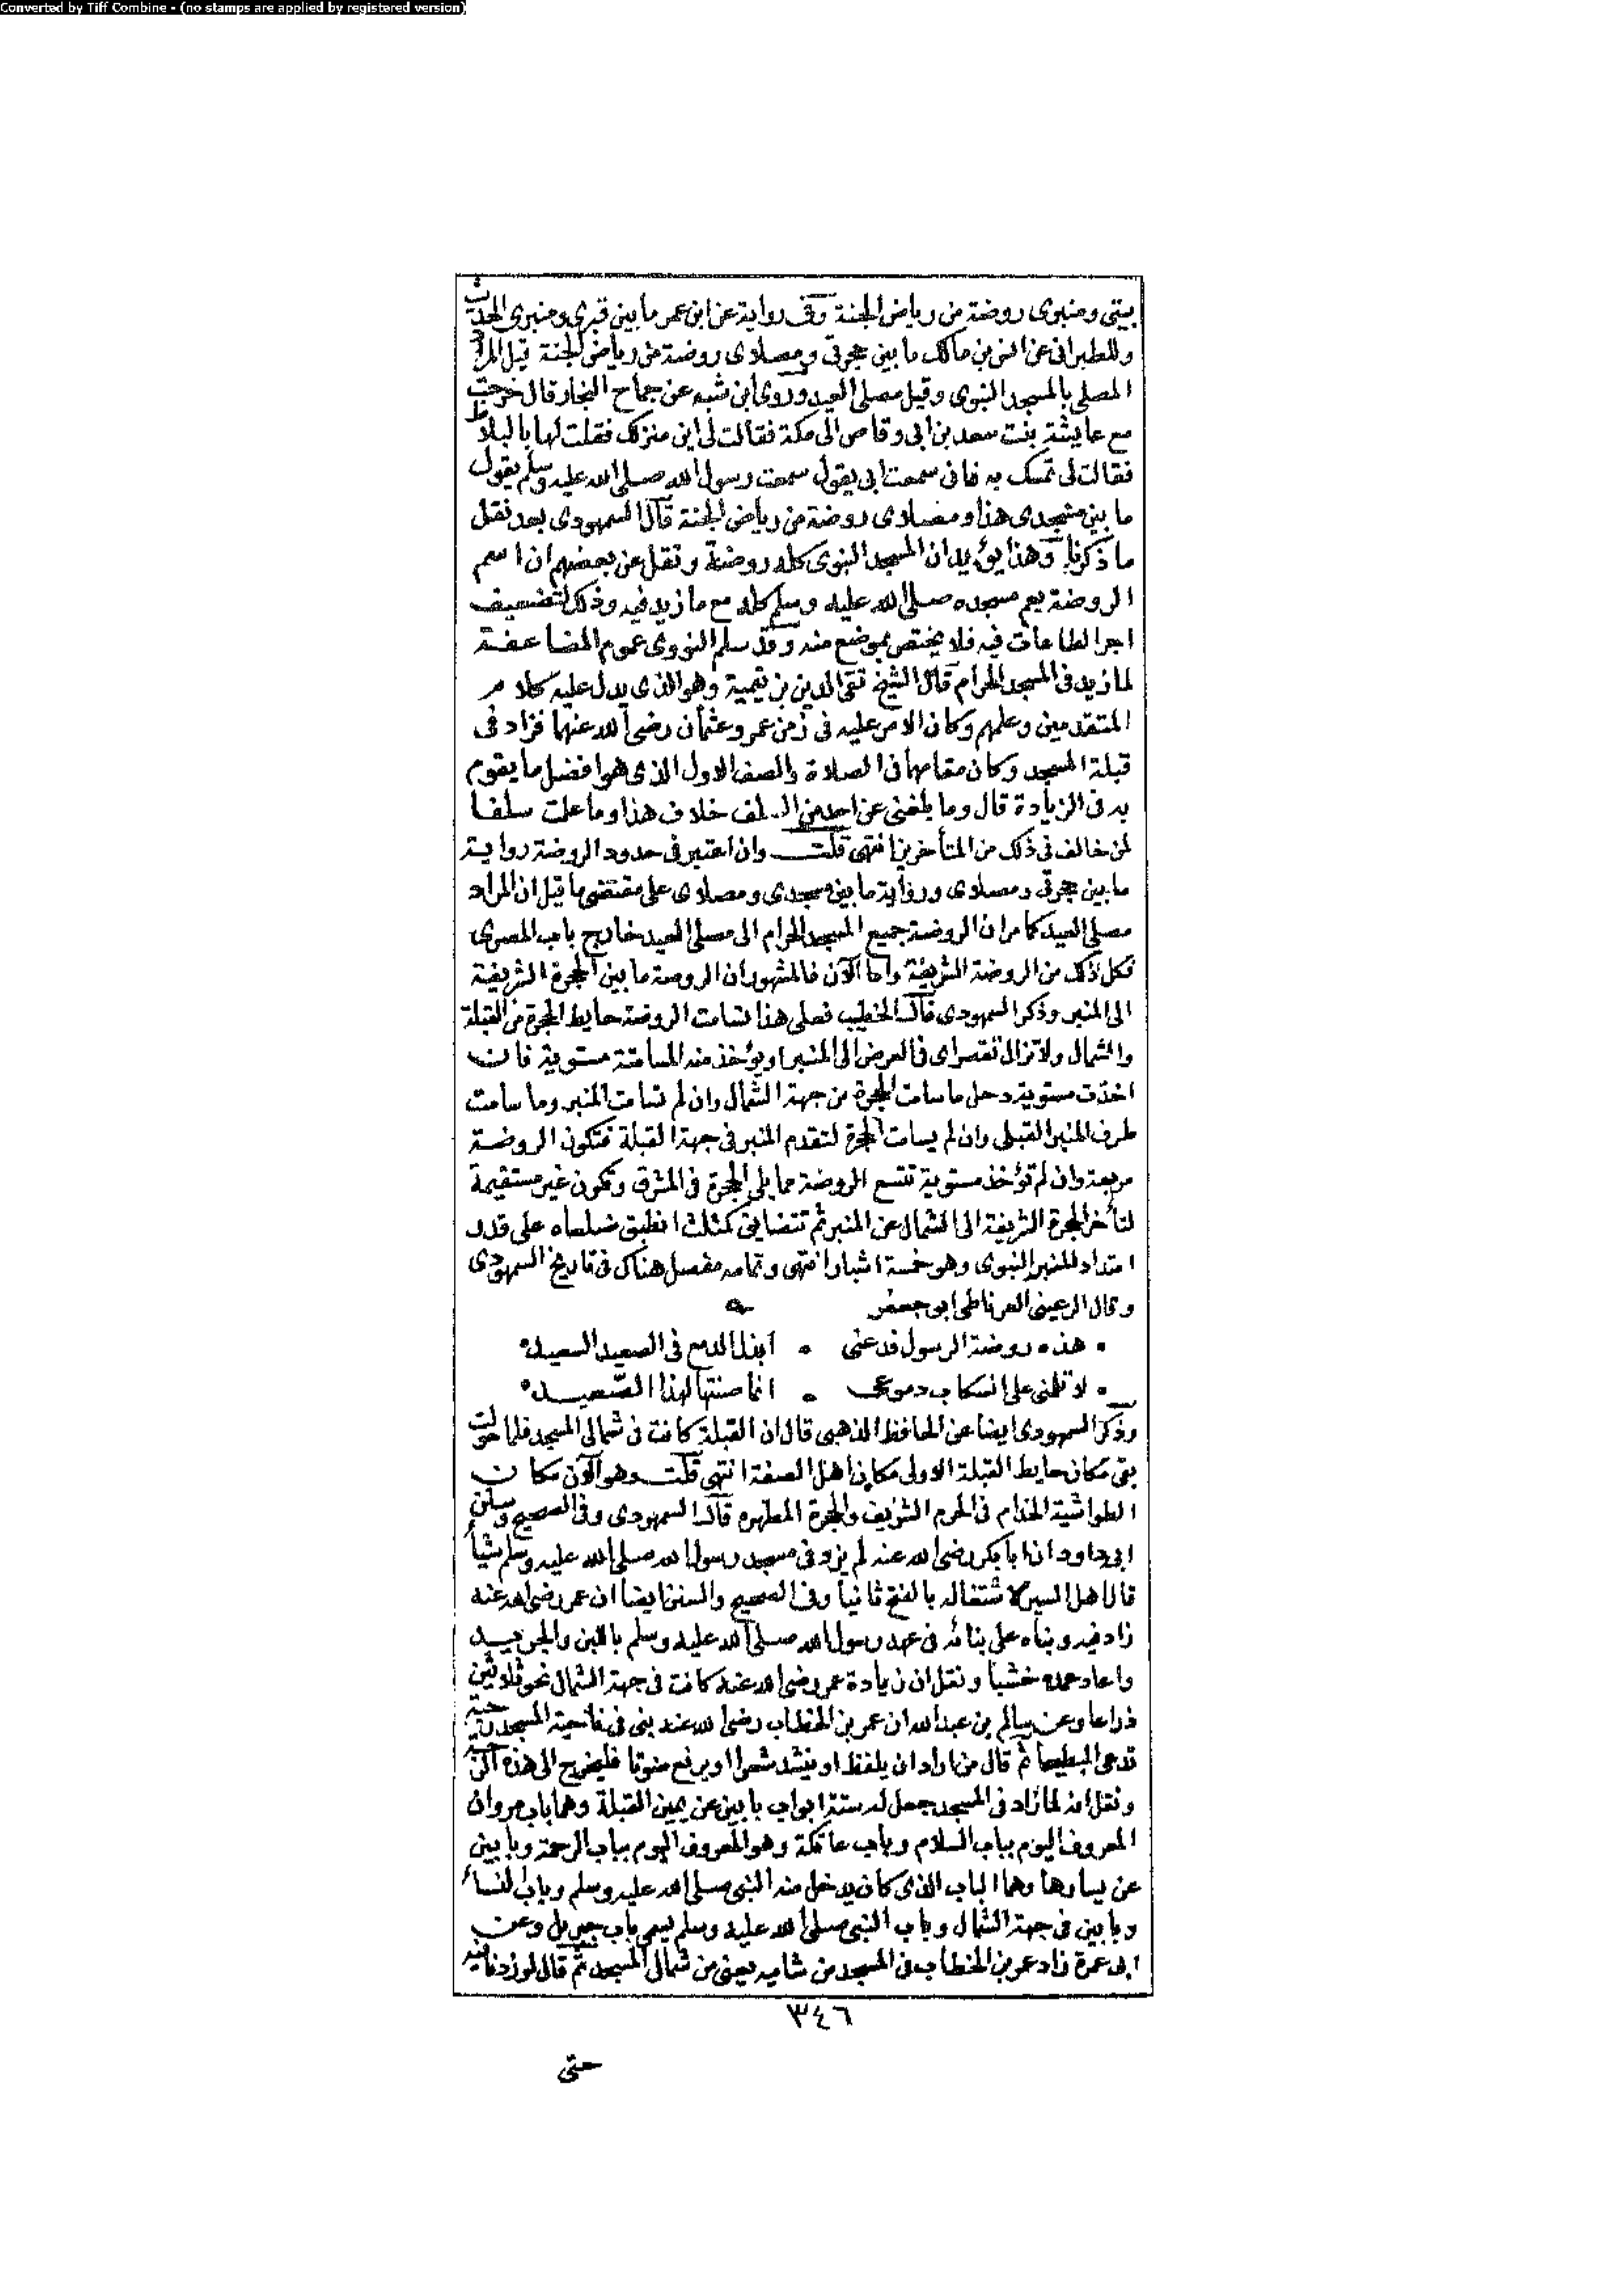 Converted by Tiff Combine - (no stamps are applied by registered version)
بيتي ومنبرى روضة من رياض الجنة وفى رواية عن ابن عمر ما بين قبرى ومنبرى الحديث
وللطبرانى عن انس بن مالك ما بين حجرتى ومصلاى روضة من رياض الجنة قيل المراد
المصلى بالمسجد النبوى وقيل مصلى العيد وروى ابن شبه عن جماح النجار قال خرجت
مع عايشة بنت سعد بن ابى وقاص الى مكة فقالت لى اين منزلك فقلت لها بالبلاط
فقالت لى تمسك به فانى سمعت ابى يقول سمعت رسول الله صلى الله عليه وسلم يقول
ما بين مسجدى هذا ومصلاى روضة من رياض الجنة قال السمهودى بعد نقل
ما ذكرنا وهذا يؤيد ان المسجد النبوى كله روضة ونقل عن بعضهم ان اسم
الروضة يعم مسجده صلى الله عليه وسلم كله مع ما زيد فيه وذكر لتضعيف
اجر الطاعات فيه فلا يختص بموضع منه وقد سلم النووى عموم المضاعفة
لما زيد فى المسجد الحرام قال الشيخ تقى الدين بن تيمية وهو الذى يدل عليه كلام
المتقدمين وعلمهم وكان الامر عليه فى زمن عمر وعثمان رضى الله عنهما فزاد فى
قبلة المسجد وكان مقامها فى الصلاة والصف الاول الذى هو افضل ما يقوم
به فى الزيادة قال وما بلغنى عن احد من السلف خلاف هذا وما علمت سلفا
لمن خالف فى ذلك من المتأخرين انتهى قلت وان اعتبر فى حدود الروضة رواية
ما بين حجرتى ومصلاى ورواية ما بين مسجدى ومصلاى على مقتضى ما قيل ان المراد
مصلى العيد كما مر ان الروضة جميع المسجد الحرام الى مصلى العيد خارج باب المصرى
فكل ذلك من الروضة الشريفة واما الآن فالمشهور ان الروضة ما بين الحجرة الشريفة
الى المنبر وذكر السمهودى قال الخطيب فعلى هذا تسامت الروضة حايط الحجرة من القبلة
والشمال ولا تزال تقصر اى فى العرض الى المنبر او يؤخذ منه المسامتة مستوية فان
اخذت مستوية دخل ما سامت الحجرة من جهة الشمال وان لم تسامت المنبر وما سامت
طرف المنبر القبلى وان لم يسامت الحجرة لتقدم المنبر فى جهة القبلة فتكون الروضة
مربعة وان لم تؤخذ مستوية تتسع الروضة مما يلى الحجرة فى المشرق وتكون غير مستقيمة
لتأخر الحجرة الشريفة الى الشمال عن المنبر ثم تتضايق كمثلث انطبق ضلعاه على قدر
امتداد المنبر النبوى وهو خمسة اشبار انتهى وتمامه مفصل هناك فى تاريخ السمهودى
وقال الرعينى الغرناطى ابو جعفر
هذه روضة الرسول فدعنى ابذل الدمع فى الصعيد السعيد
لا تلمنى على انسكاب دموعى انما صنتها لهذا الصعيد
وذكر السمهودى ايضا عن الحافظ الذهبى قال ان القبلة كانت فى شمالى المسجد فلما حولت
بقى مكان حايط القبلة الاولى مكان اهل الصفة انتهى قلت وهو الآن مكان
الطواشية الخدام فى الحرم الشريف والحجرة المطهره قال السمهودى وفى الصحيح وسنن
ابى داود ان ابا بكر رضى الله عنه لم يزد فى مسجد رسول الله صلى الله عليه وسلم شيأ
قال اهل السير لاشتغاله بالفتح ثانيا وفى الصحيح والسنن ايضا ان عمر رضى الله عنه
زاد فيه وبناه على بنائه فى عهد رسول الله صلى الله عليه وسلم باللبن والجريد
واعاد عمده خشبا ونقل ان زيادة عمر رضى الله عنه كانت فى جهة الشمال نحو ثلاثين
ذراعا وعن سالم بن عبد الله ان عمر بن الخطاب رضى الله عنه بنى فى ناحية المسجد رحبة
تدعى البطيحا ثم قال من اراد ان يلفظ او ينشد شعرا او يرفع صوتا فليخرج الى هذه الرحبة
ونقل انه لما زاد فى المسجد جعل له ستة ابواب بابين عن يمين القبلة وهما باب مروان
المعروف اليوم بباب السلام وباب عاتكة وهو المعروف اليوم بباب الرحمة وبابين
عن يسارها وهما الباب الذى كان يدخل منه النبى صلى الله عليه وسلم وباب النساء
وبابين فى جهة الشمال وباب النبى صلى الله عليه وسلم يسمى باب جبريل وعن
ابى عمرة زاد عمر بن الخطاب فى المسجد من شاميه يعنى من شمالى المسجد ثم قال لو زدنا فيه
٣٤٦
حتى